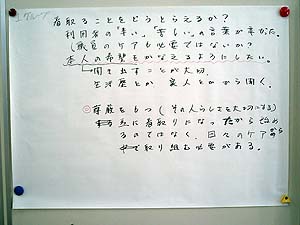 1グループ
看取ることをどうとらえるか?
利用者の「辛い」「苦しい」の言葉が来かた。
(職員のケアも必要ではないか?
本人の希望をかなえるようにしたい。
聞き出すことが大切。
生活歴とか 家人とかから聞く。
尊厳をもつ(その人らしさを大切にする)
急に看取りになったから始め
るのではなく、日々のケアから
中で取り組む必要がある。